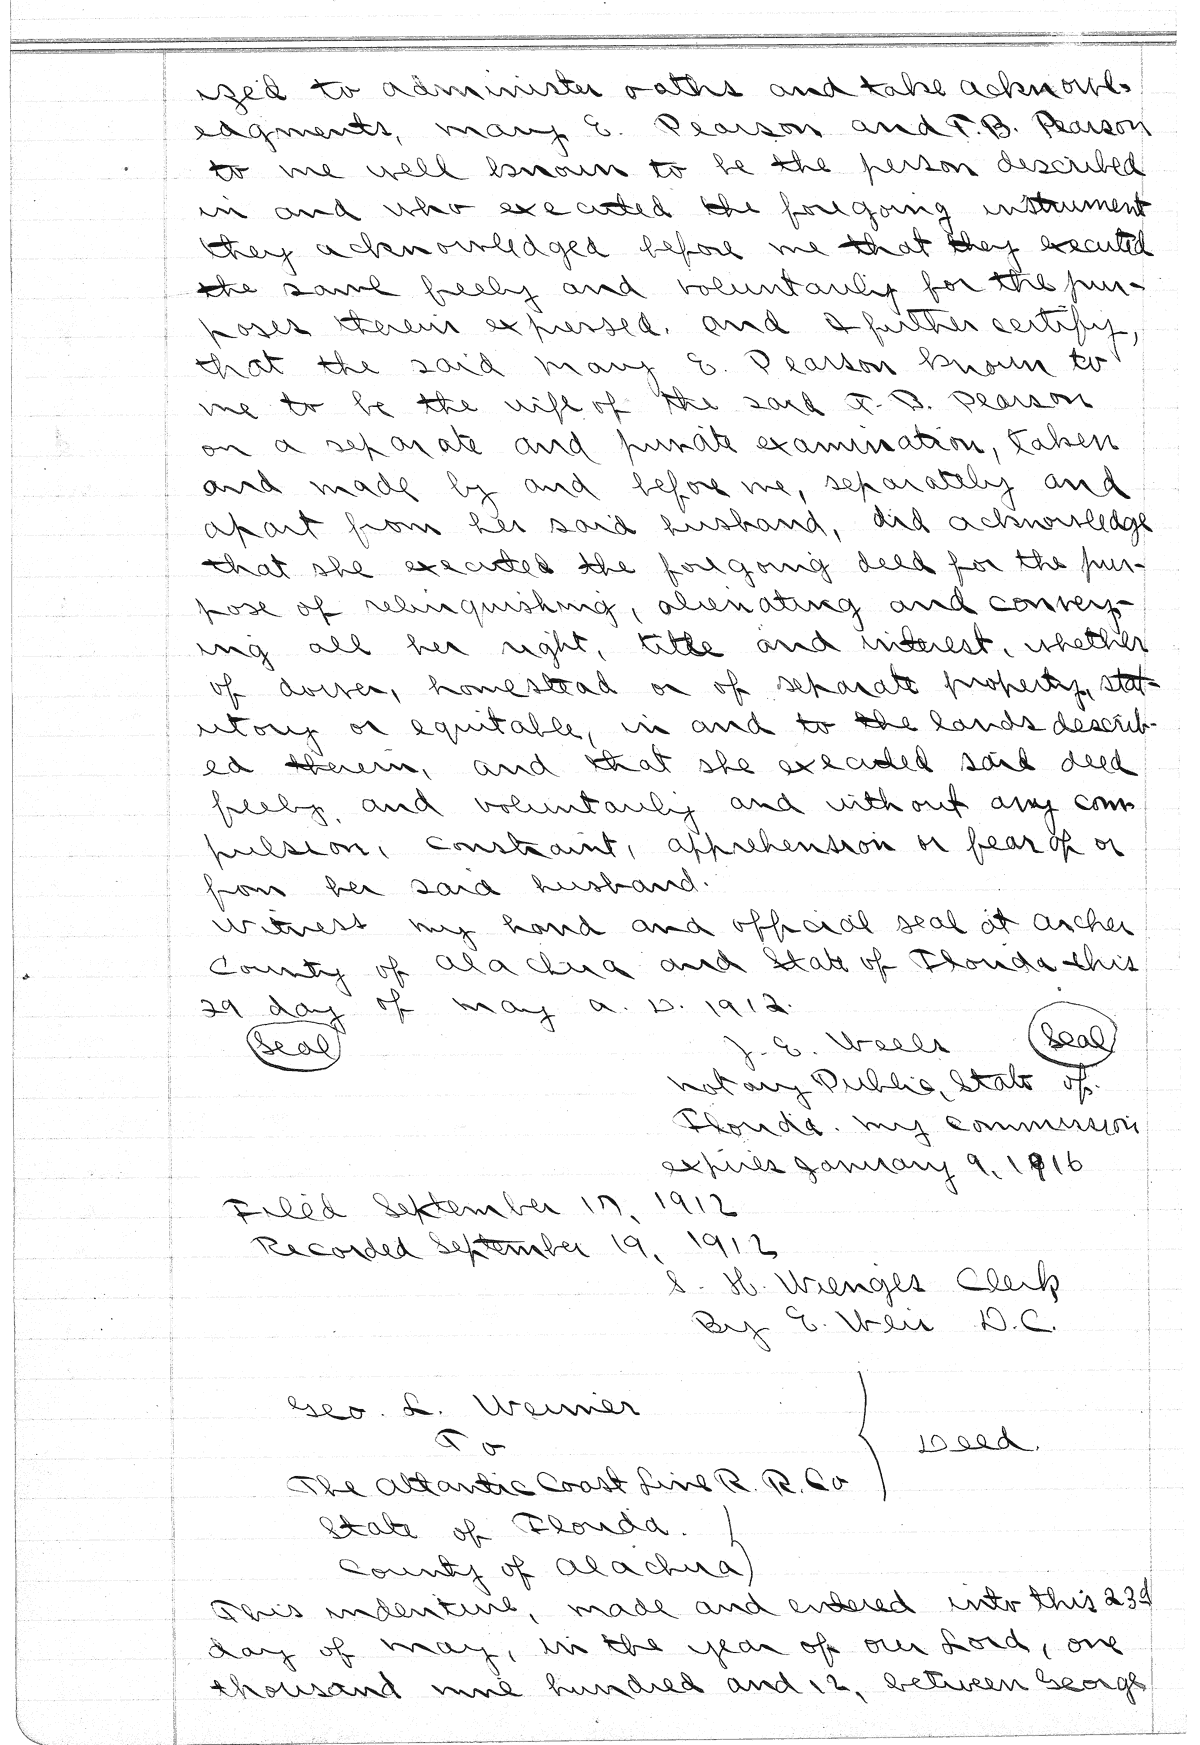 ized to administer oaths and take acknowl-
edgments, Mary E. Pearson and F.B. Pearson
to me well known to be the person described
in and who executed the foregoing instrument
they acknowledged before me that they executed
the same freely and voluntarily for the pur-
poses therein expressed. and I further certify,
that the said Mary E. Pearson known to
me to be the wife of the said F. B. Pearson
on a separate and private examination, taken
and made by and before me, separately and
apart from her said husband, did acknowledge
that she executed the foregoing deed for the pur-
pose of relinquishing, alienating and convey-
ing all her right, title and interest, whether
of dower, homestead or of separate property, stat-
utory or equitable, in and to the lands describ-
ed therein, and that she executed said deed
freely, and voluntarily and without any com-
pulsion, constraint, apprehension or fear of or
from her said husband.
Witness my hand and official seal at Archer
County of Alachua and State of Florida this
29 day of May A. D. 1912.
Seal J. E. Wells Seal
Notary Public, State of
Florida. My commission
expires January 9, 1916
Filed September 17, 1912
Recorded September 19, 1912
S. H. Wienges Clerk
By E. Weir D.C.
Geo. L. Weimer
To
Deed.
The Atlantic Coast Line R. R. Co
State of Florida.
County of Alachua
This indenture, made and entered into this 23d
day of May, in the year of our Lord, one
thousand nine hundred and 12, between George